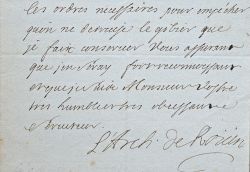 les ordres necessaires pour empêcher
qu'on ne detruise le gibier que
je fais conserver Vous assurant
que j'en seray fort reconnoissant
et que je suis Monsieur Vostre
tres humble et tres obeissant
Serviteur
L'Arch. de